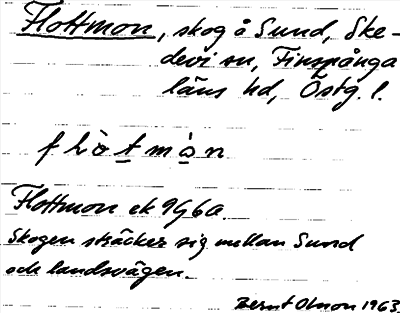 Flottmon, skog å Sund, Ske-
devi sn, Finspånga
läns hd, Östg. l.
flò̀tmò̀n
Flottmon ek 9G6a
Skogen sträcker sig mellan Sund
och landsvägen.
Bernt Olsson 1963.